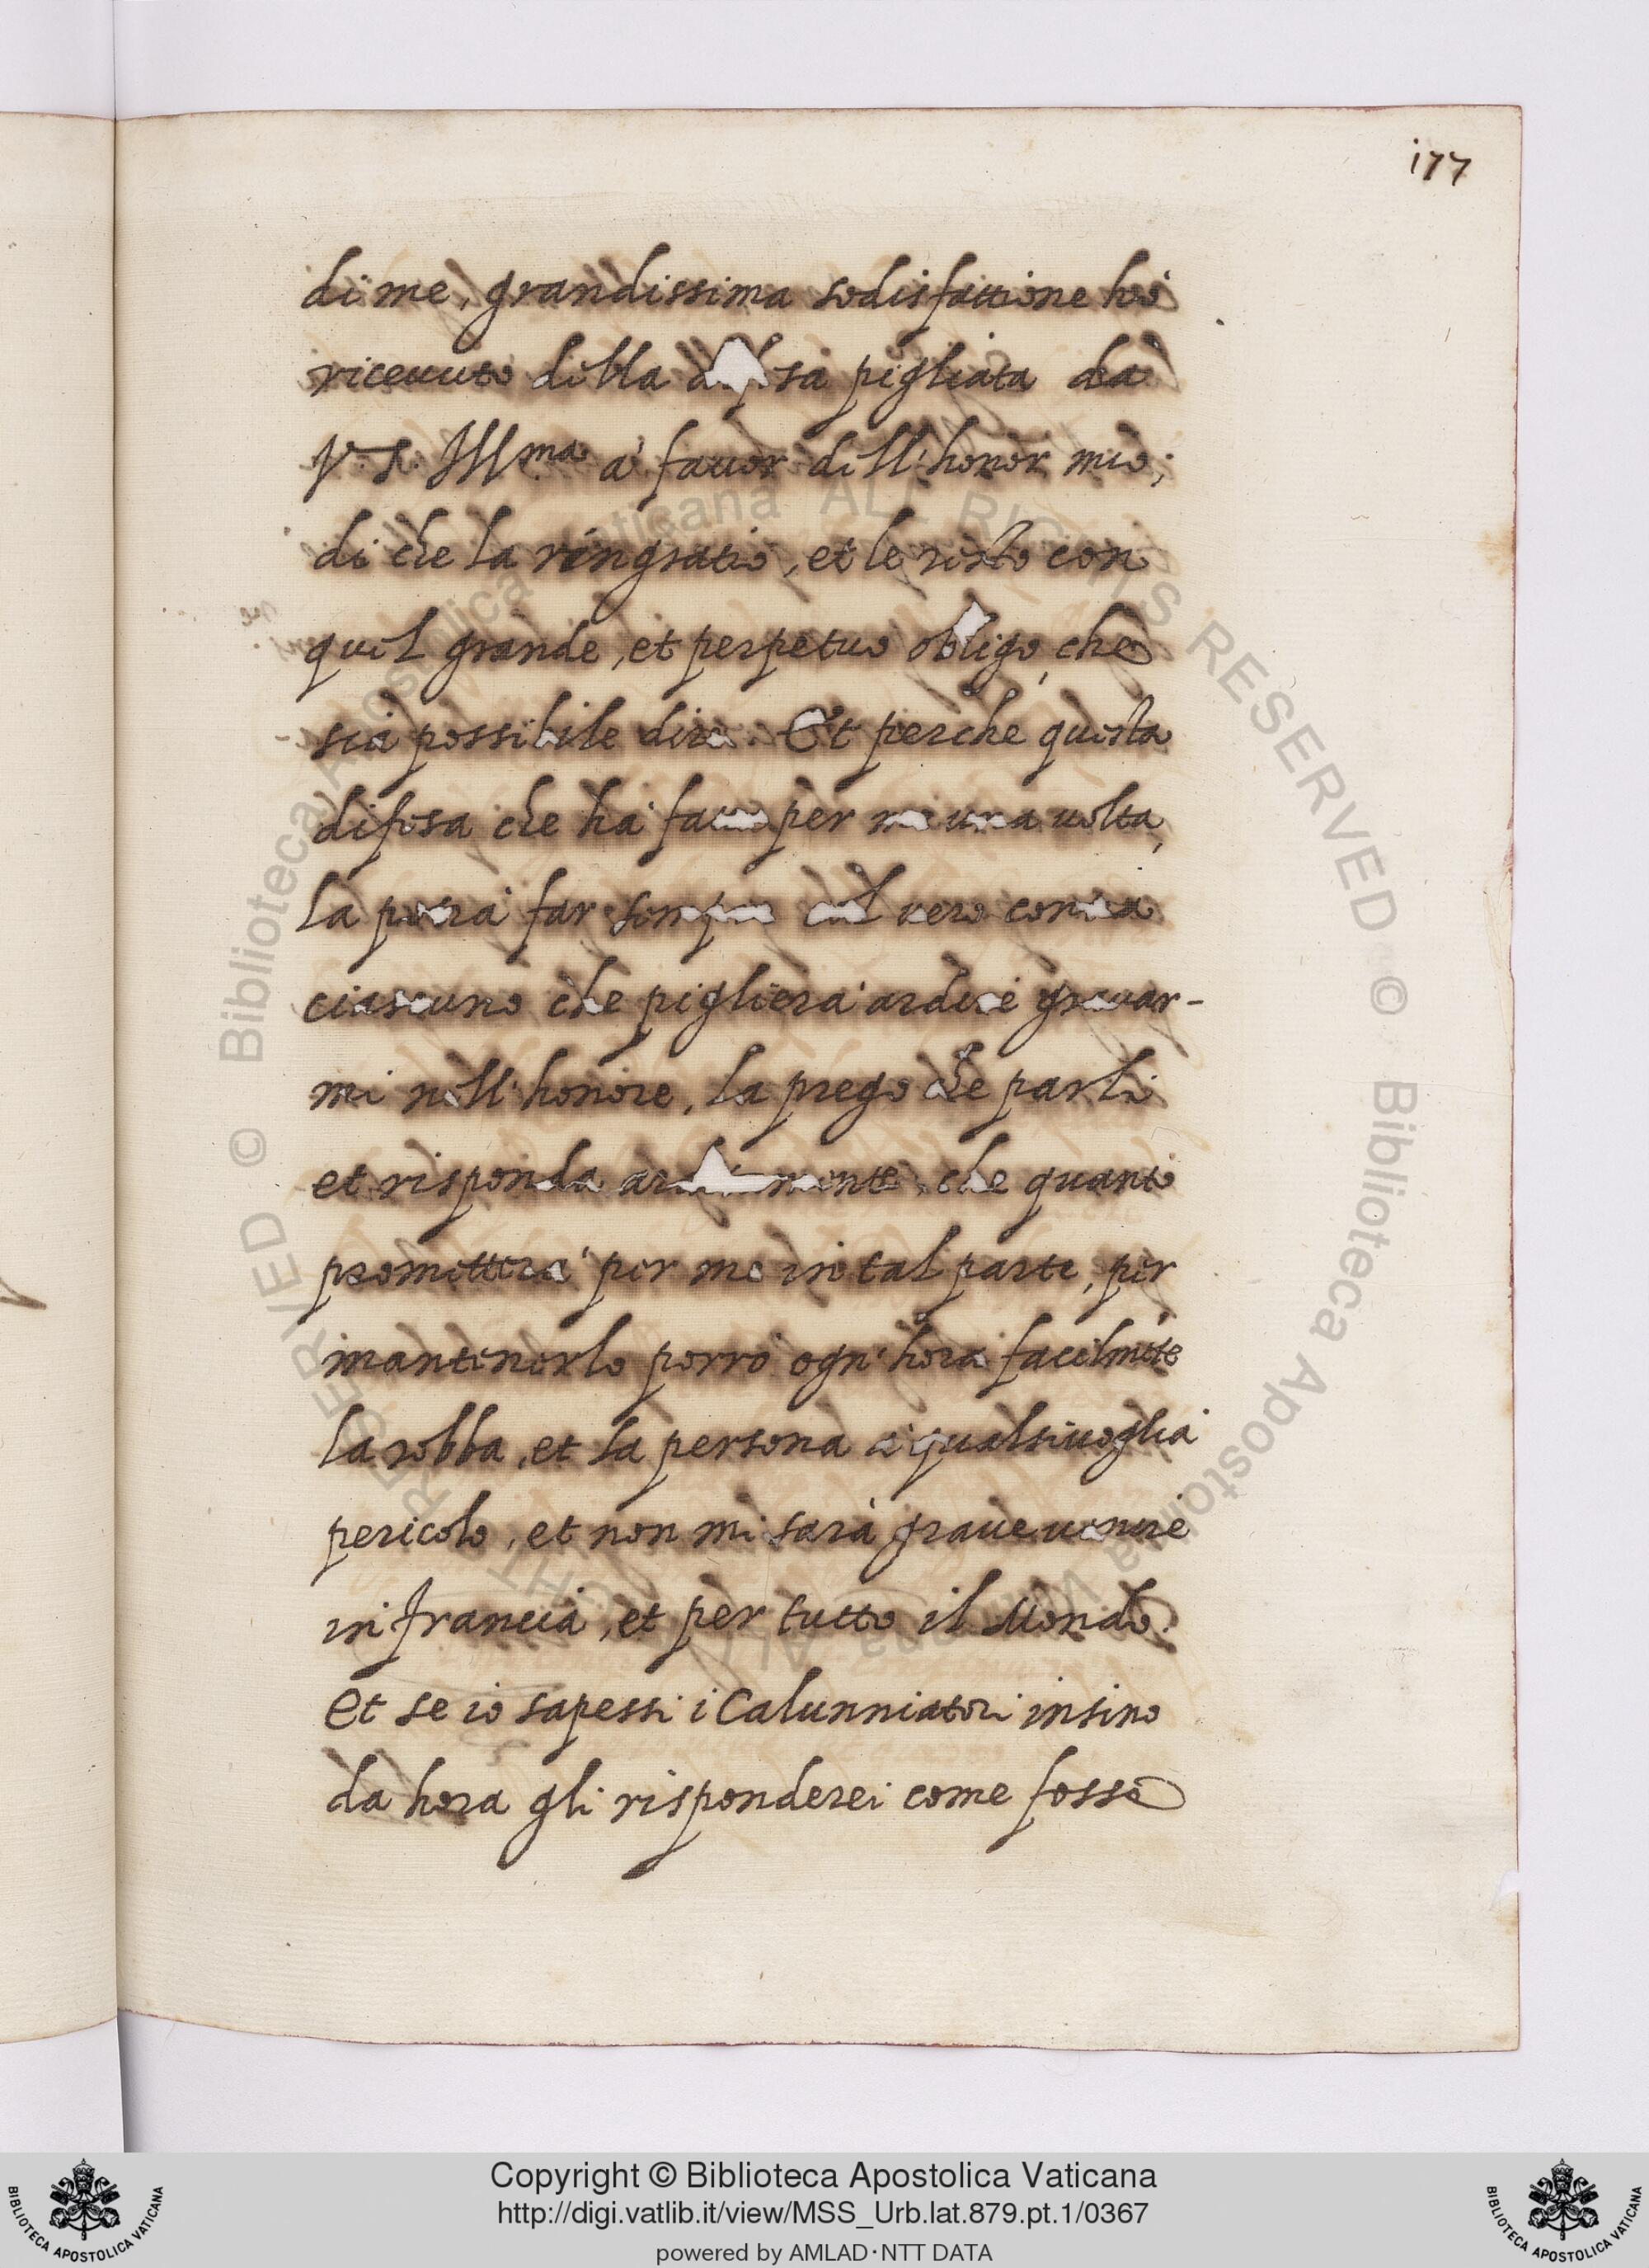 177
di me, grandissima sodisfattione hò
riceuuto della sa pigliata da
V. S. Ill.ma à fauor dell'honor mio;
di che la ringratio, et le resto con
quel grande, et perpetuo obligo, che
sia possibile dire. Et perche questa
difesa che hà per me una uolta,
la potrà far sempre col uero contra
ciascuno che piglierà ardire grauar-
mi nell'honore, la prego che parli
et risponda che quanto
prometterà per me in tal parte, per
mantenerlo porrò ogn'hora facilmēte
la robba, et la persona à qualsiuoglia
pericolo, et non mi sarà graue uenire
in francia, et per tutto il Mondo.
Et se io sapessi i Calunniatori insino
da hora gli risponderei come fosse
© Biblioteca Apostolica Vaticana ALL RIGHTS RESERVED © Biblioteca Apostolica Vaticana ALL RIGHTS RESERVED
Copyright © Biblioteca Apostolica Vaticana
http://digi.vatlib.it/view/MSS_Urb.lat.879.pt.1/0367
powered by AMLAD·NTT DATA
BIBLIOTECA APOSTOLICA VATICANA
BIBLIOTECA APOSTOLICA VATICANA